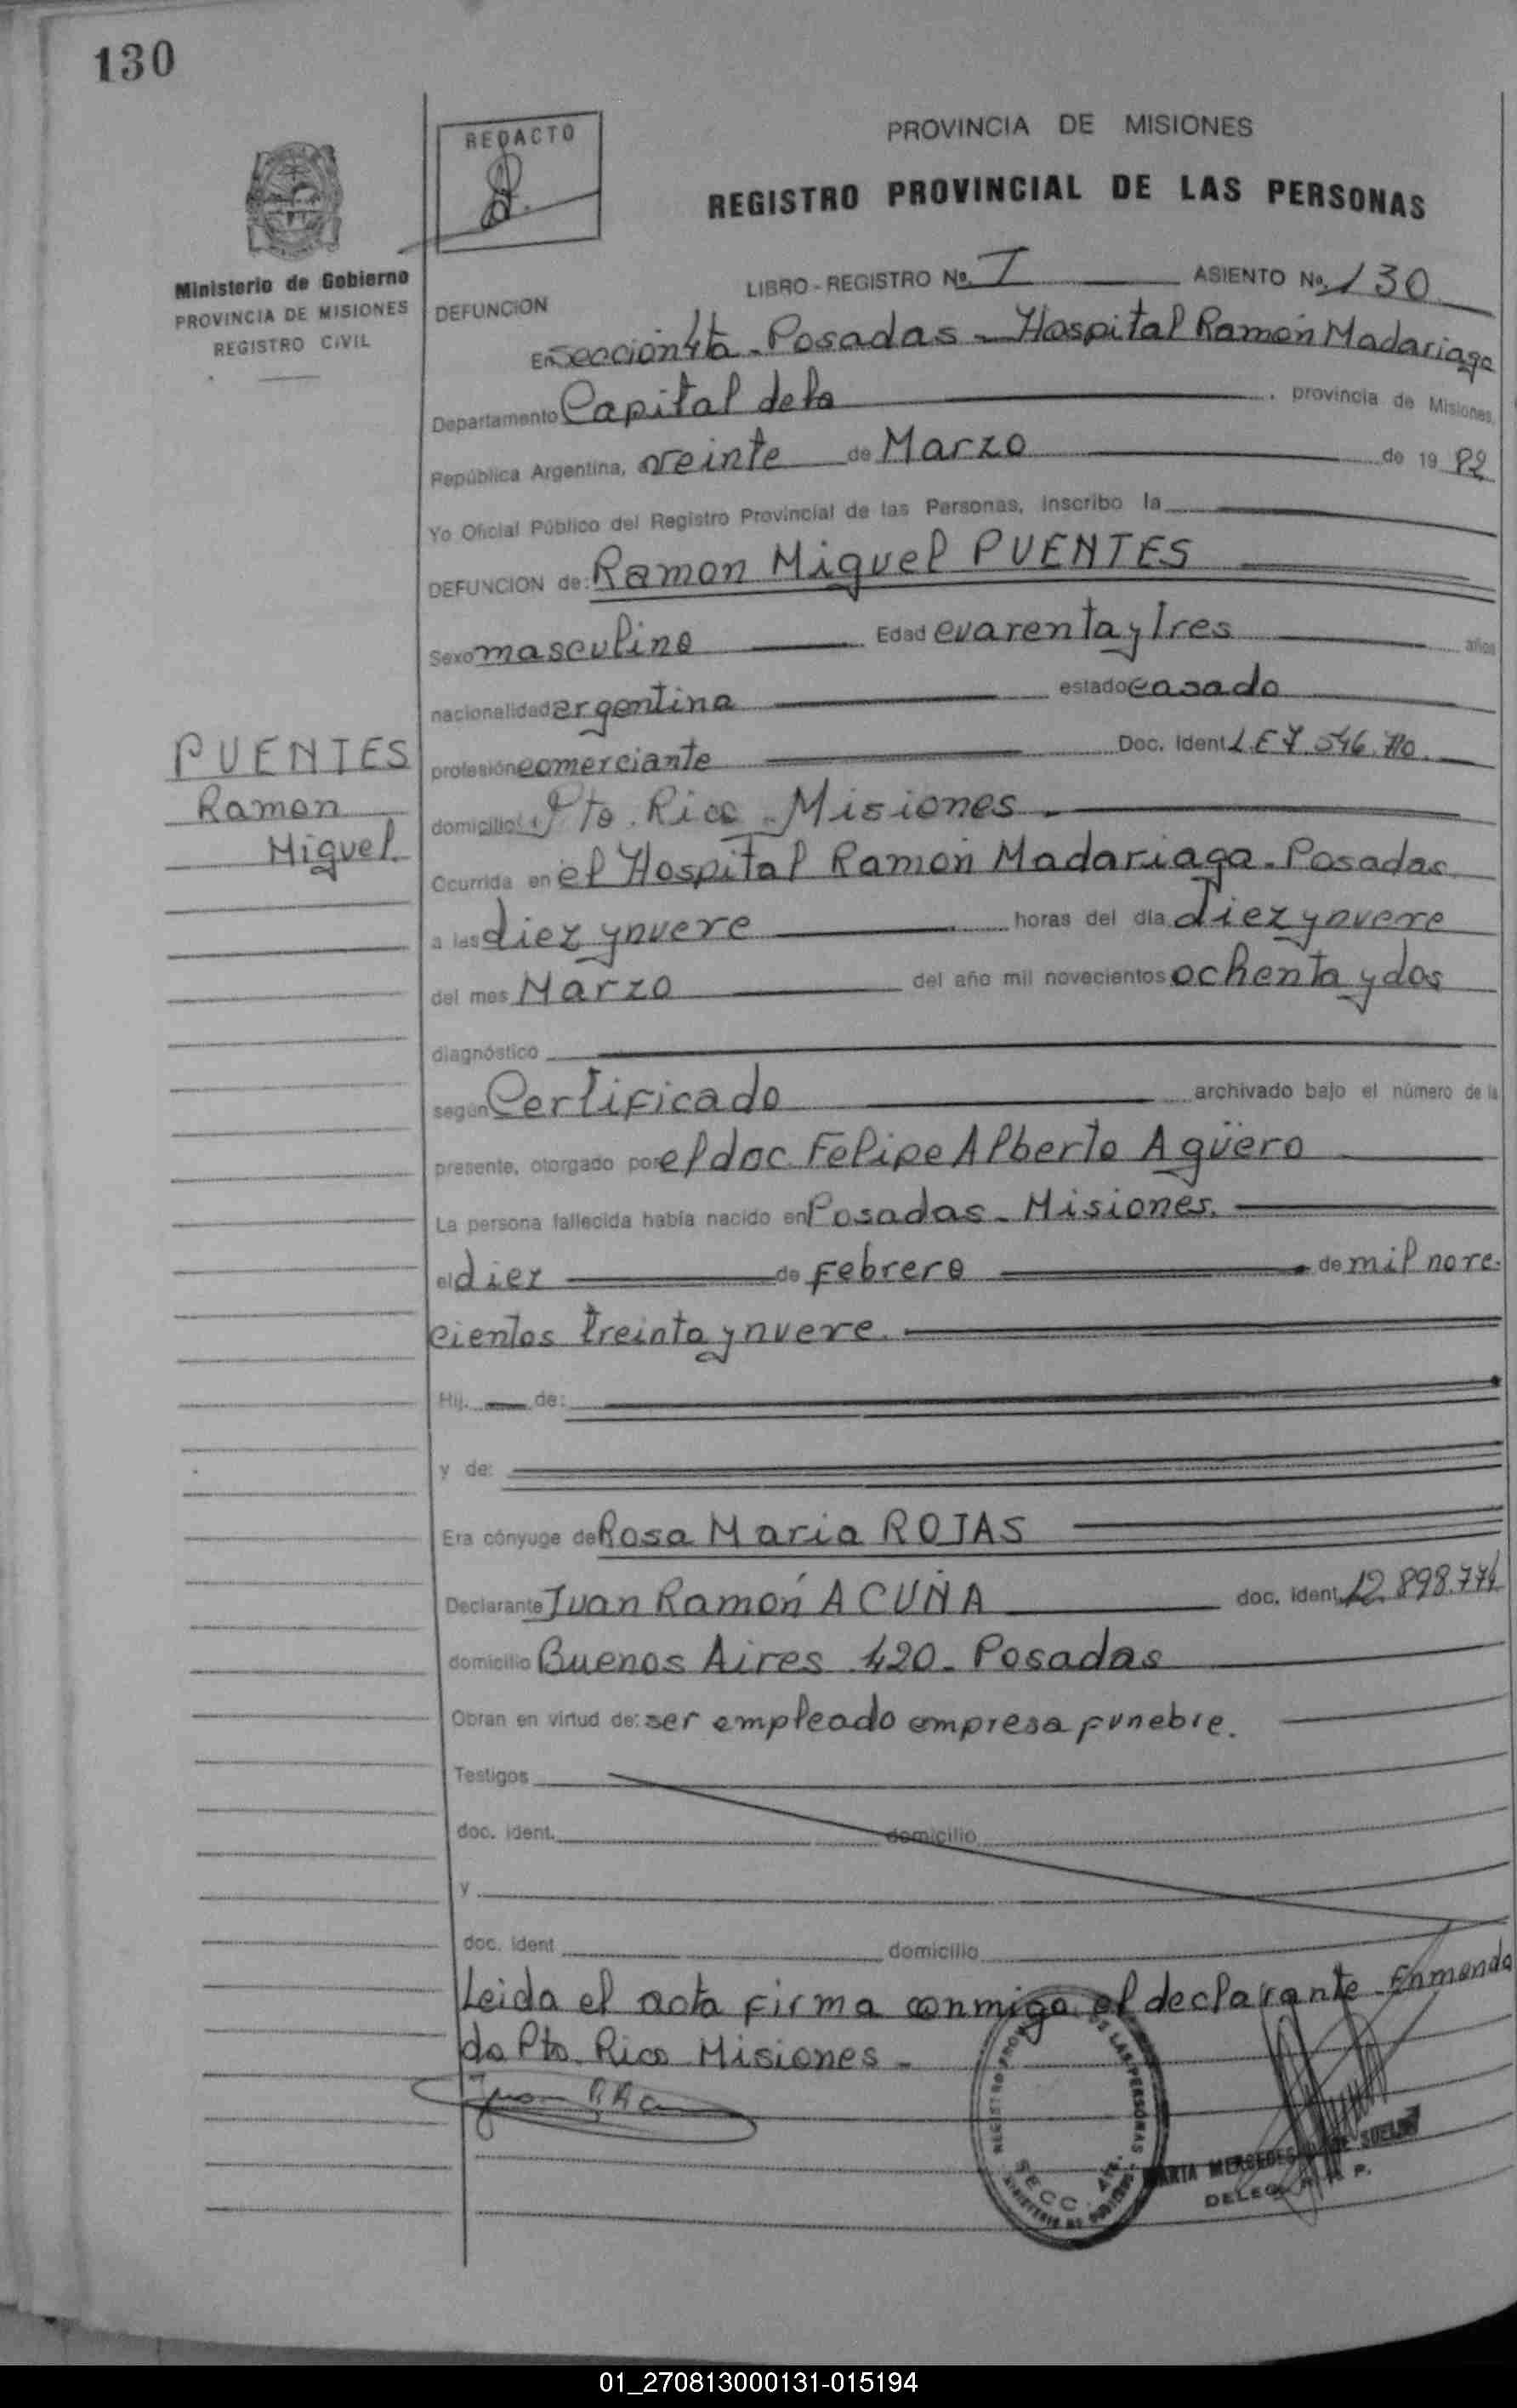 130
REDACTO
PROVINCIA DE MISIONES
REGISTRO PROVINCIAL DE LAS PERSONAS
Ministerio de Gobierno
PROVINCIA DE MISIONES
REGISTRO CIVIL
LIBRO - REGISTRO Nº. I ASIENTO Nº. 130
DEFUNCION
En Seccion 4ta - Posadas - Hospital Ramón Madariaga
Departamento Capital de la provincia de Misiones,
República Argentina, veinte de Marzo de 19 82
Yo Oficial Público del Registro Provincial de las Personas, inscribo la
DEFUNCION de: Ramon Miguel PUENTES
Sexo masculino Edad cuarenta y tres años
nacionalidad argentina estado casado
PUENTES
Ramon
Miguel
profesión comerciante Doc. Ident L.E 7.546.710.
domicilio Pto. Rico - Misiones -
Ocurrida en el Hospital Ramón Madariaga - Posadas
a las diez y nueve horas del día diez y nueve
del mes Marzo del año mil novecientos ochenta y dos
diagnóstico
según Certificado archivado bajo el número de la
presente, otorgado por el doc. Felipe Alberto Agüero
La persona fallecida había nacido en Posadas - Misiones.
el diez de Febrero de mil nove-
cientos treinta y nueve.
Hij. de:
y de:
Era cónyuge de Rosa Maria ROJAS
Declarante Juan Ramón ACUÑA doc. ident. 12.898.774
domicilio Buenos Aires 420 - Posadas
Obran en virtud de: ser empleado empresa funebre.
Testigos
doc. ident. domicilio
y
doc. ident domicilio
Leida el acta firma conmigo el declarante - Enmenda
do Pto. Rico Misiones -
REGISTRO DE LAS PERSONAS
SECC. 4ta.
MARIA MERCEDES DE
DELEG. P.
01_270813000131-015194